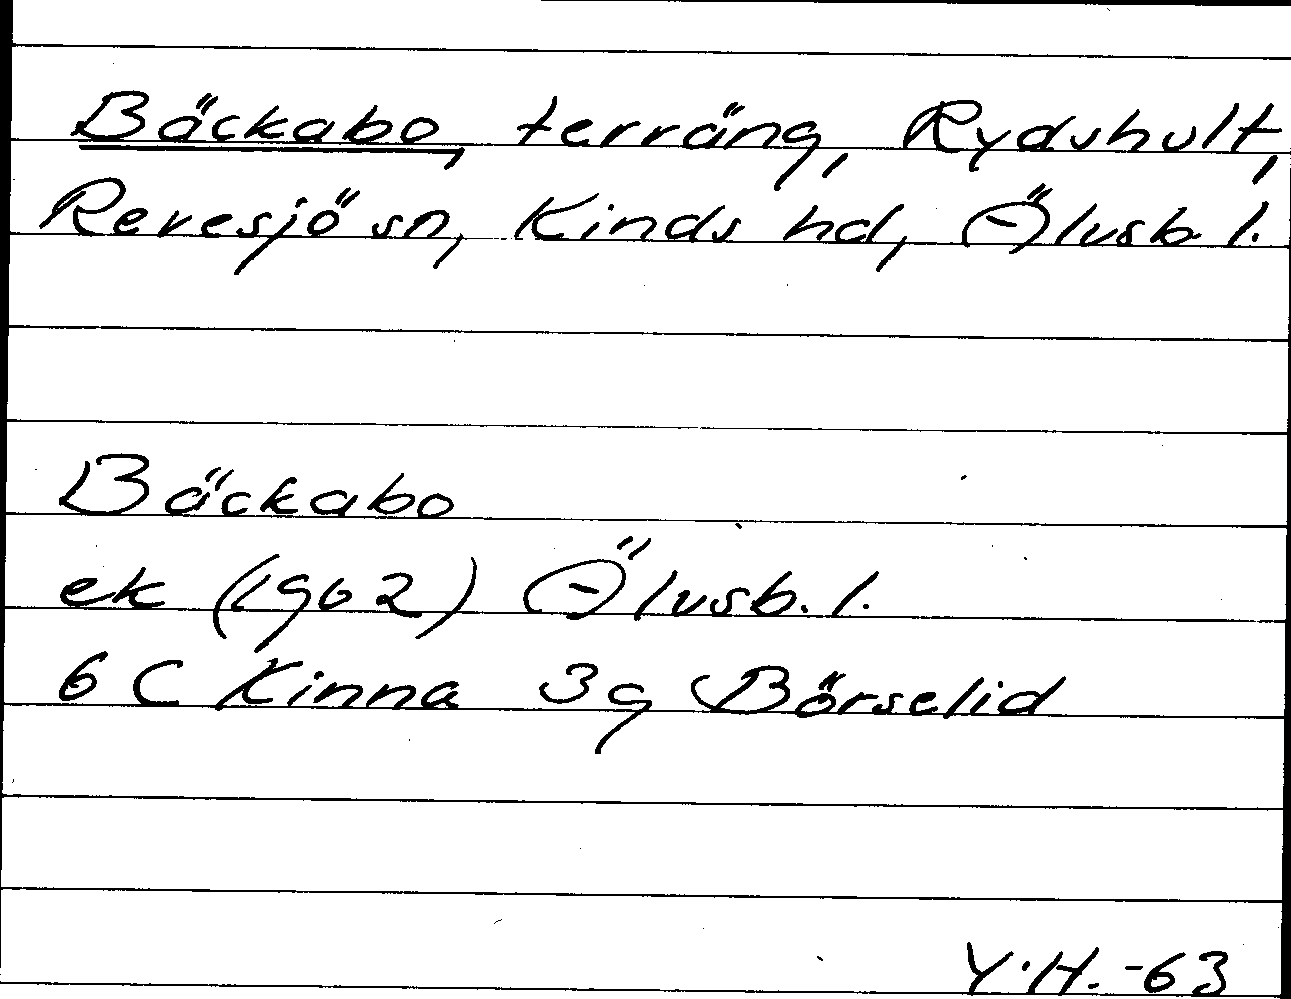 Bäckabo, terräng, Rydshult,
Revesjö sn, Kinds hd, Älvsb. l.
Bäckabo
ek (1962) Älvsb. l.
6 C Kinna 3g Börselid
Y.H. -63